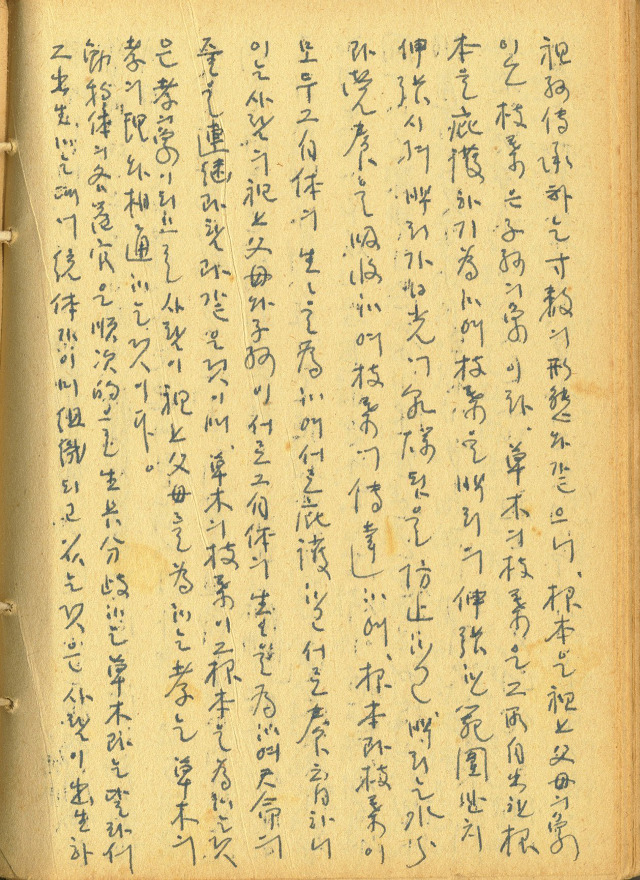 祖孫傳承하는 寸數의 形態와 같으니, 根本은 祖上父母의 象
이오 枝葉은 子孫의 象이라, 草木의 枝葉은 그 所自出인 根
本을 庇護하기 爲하여 枝葉은 뿌리의 伸張한 範圍까지
伸張시켜 뿌리가 日光에 乾燥됨을 防止하고 뿌리는 水分
과 營養을 吸收하여 枝葉에 傳達하여, 根本과 枝葉이
모두 그 自体의 生을 爲하여 서로 庇護하고 서로 養育하니
이는 사람의 祖上父母와 子孫이 서로 그 自体의 生을 爲하여 天命의
줄을 連繼함과 같은 것이며, 草木의 枝葉이 그 根本을 爲하는 것
은 孝의 象이리오 사람이 祖上父母를 爲하는 孝는 草木의
孝의 理와 相通하는 것이다.
動物体의 各 器官은 順次的으로 生長分岐하는 草木과는 달라서
그 出生하는 때에 統体가 이미 組織되고 있는 것은 사람이 出生하